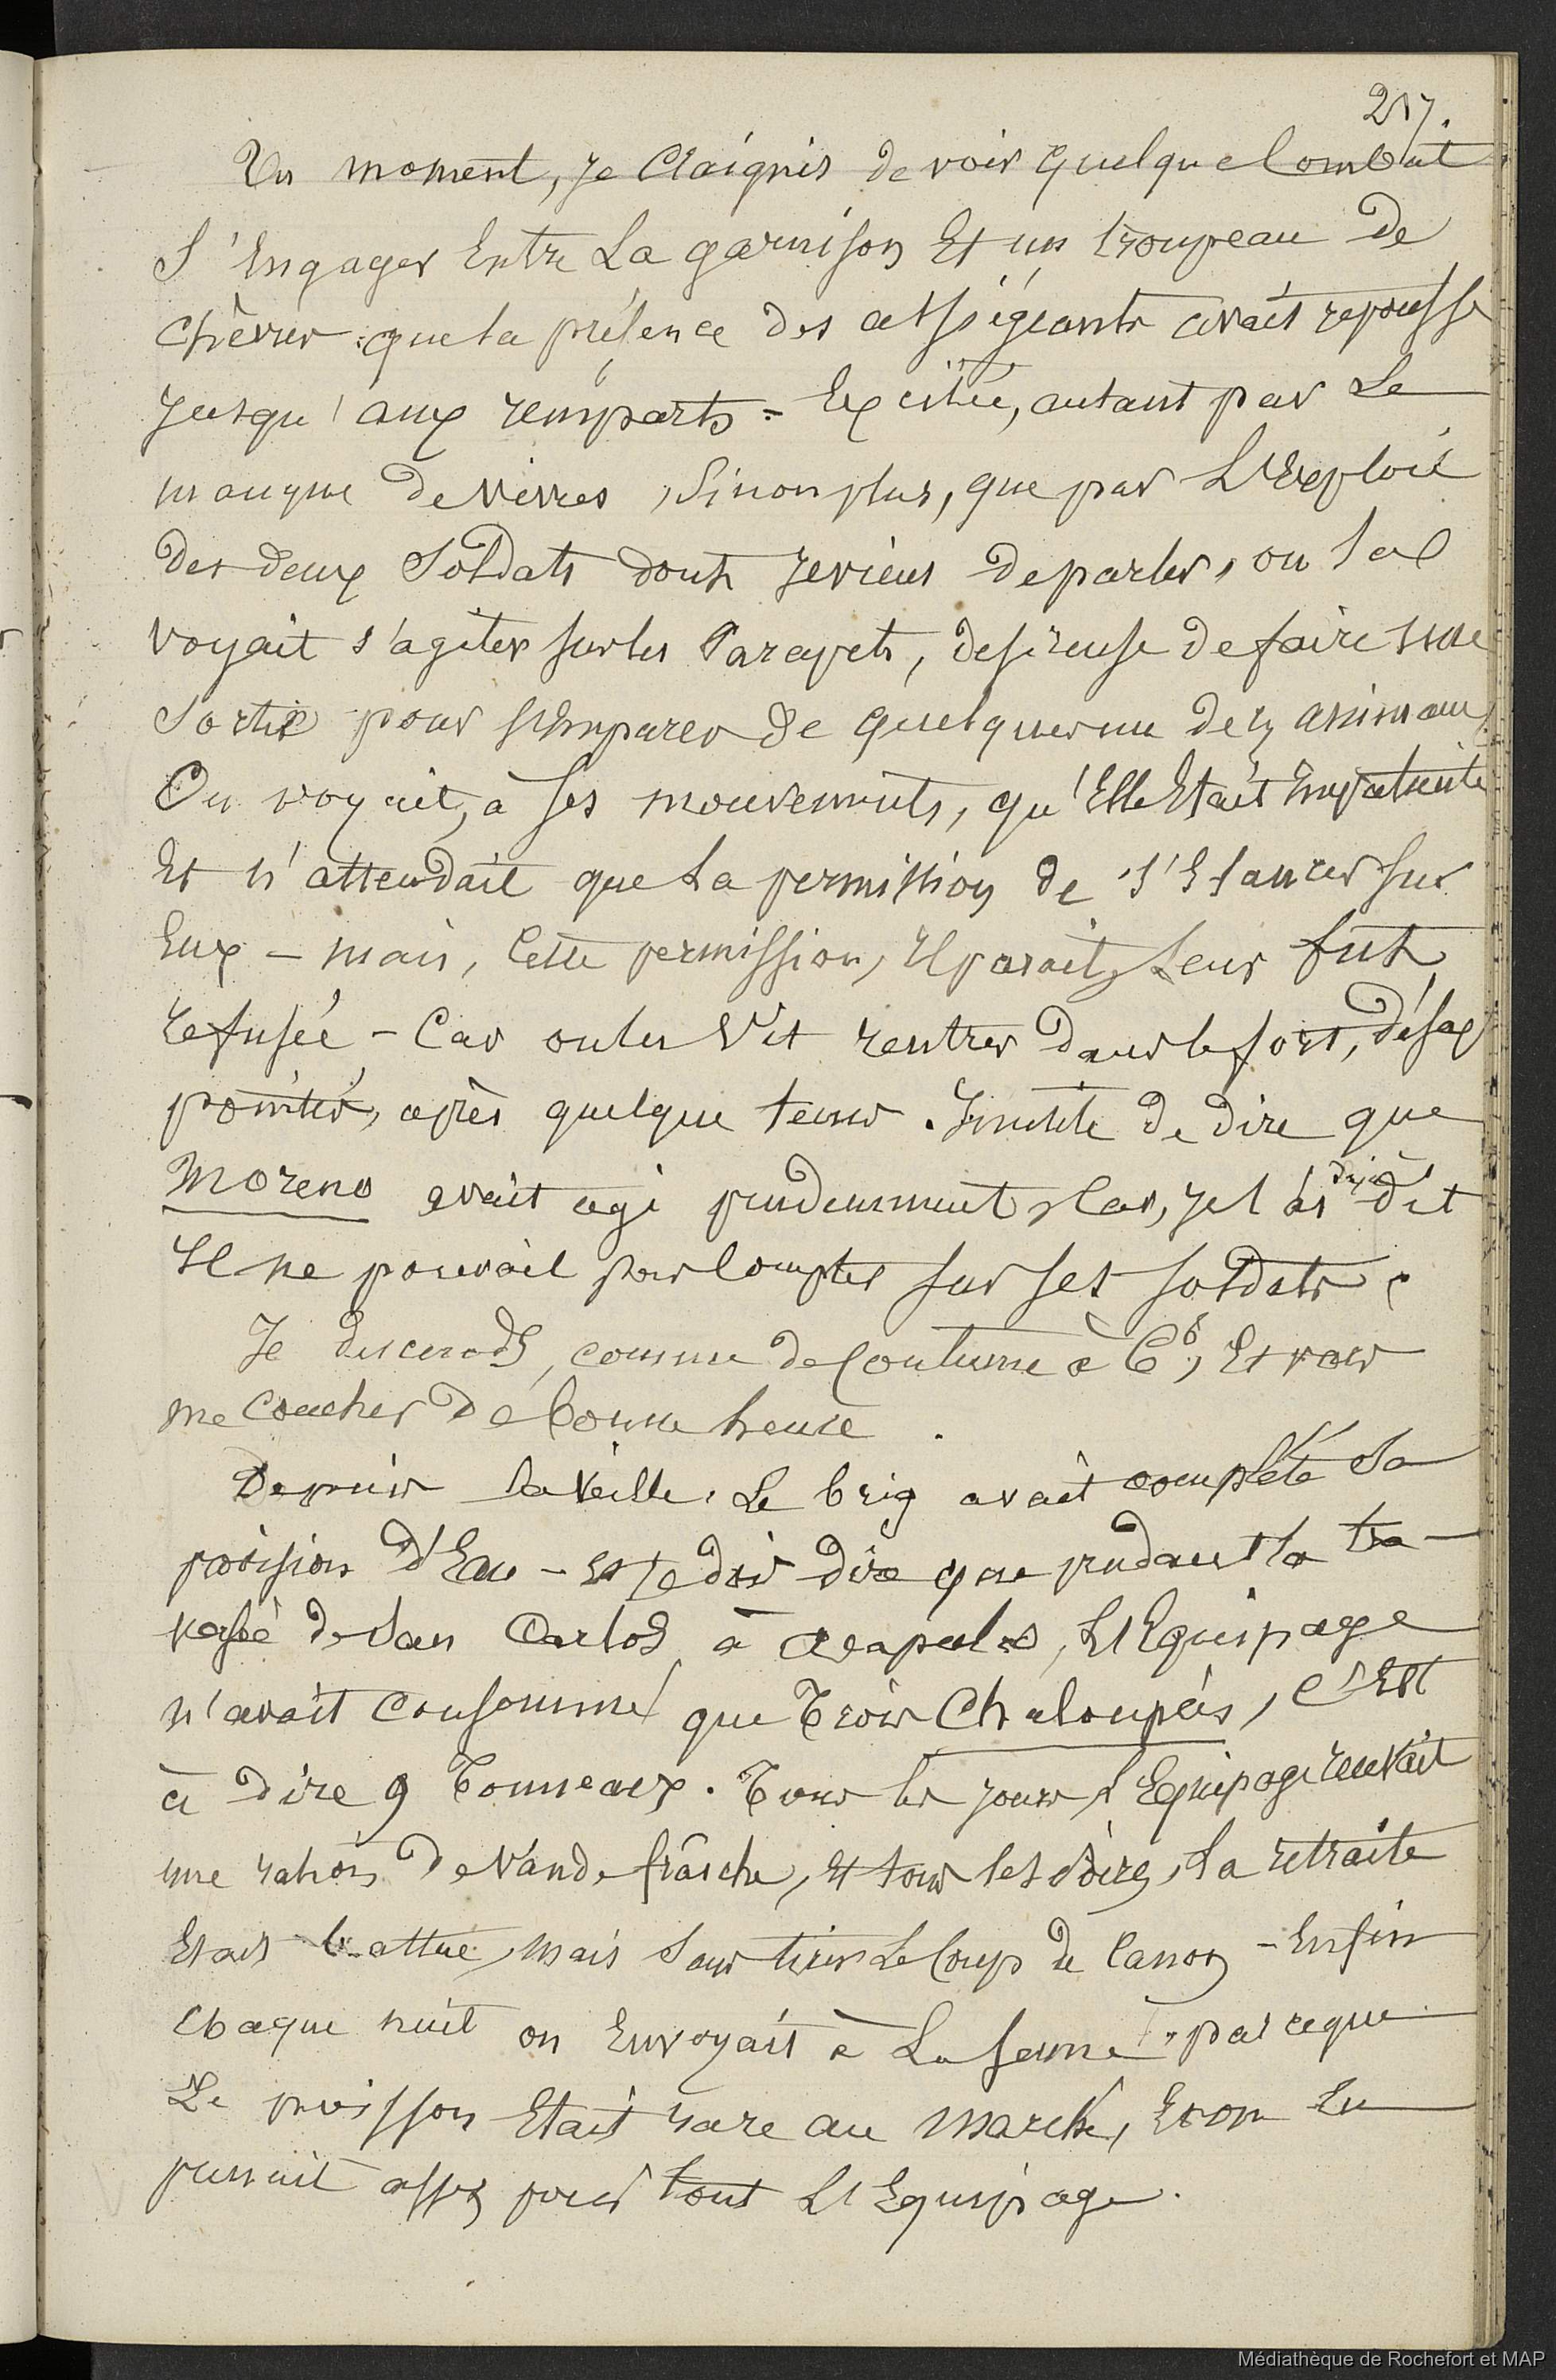 217.
Un moment, je craignis de voir quelque combat
s'engager entre la garnison et un troupeau de
chèvres que la présence des assiégeants avait repoussé
jusqu'aux remparts = Excitée, autant par le
manque de vivres, sinon plus, que par l'Exploit
des deux soldats dont je viens de parler, on la
voyait s'agiter sur les Parapets, desireuse de faire une
sortie pour s'emparer de quelques un de ces animaux
On voyait, à ses mouvements, qu'Elle Etait Impatiente
Et n'attendait que la permission de s'Elancer sur
Eux - mais, cette permission, Il parait, leur fut
refusée - Car on les vit rentrer dans le fort, désap
pointés, après quelque tems. Inutile de dire que
Moreno avait agi prudemment, Car, je l'ai déjà dit
Il ne pouvait pas compter sur ses soldats.
Je descends, comme de coutume à 6h, Et vais
me coucher de bonne heure.
Depuis la veille, Le brig avait complété sa
provision d'Eau - Et je dois dire que pendant la tra-
versée de San Carlos à Acapulco, L'Equipage
n'avait consommé que trois Chaloupées, c'Est
à dire 9 Tonneaux. Tous les jours l'Equipage recevait
une ration de Viande fraîche, Et tous les soirs, la retraite
Etait battue, mais sans tirer Le Coup de Canon - Enfin
chaque nuit on Envoyait à La senne, parceque
Le poisson Etait rare au marché, Et on En
prenait assez pour tout L'Equipage.
Médiathèque de Rochefort et MAP